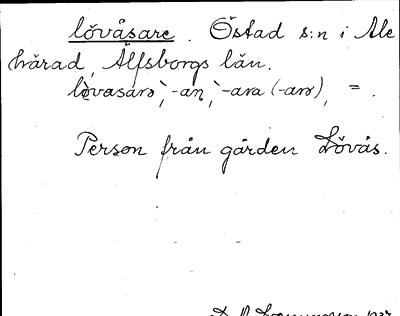 lövåsare. Östad s:n i Ale
härad, Älfsborgs län.
lövasarə, -an, -ara (-arə), =.
Person från gården Lövås.